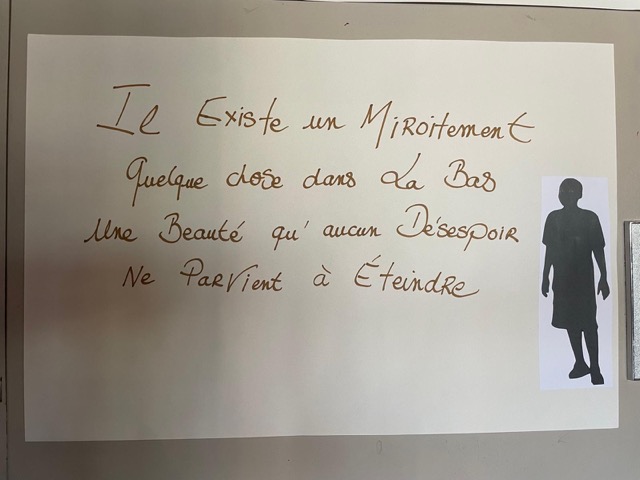 Il Existe un Miroitement
Quelque chose dans La Bas
Une Beauté qu'aucun Désespoir
Ne Parvient à Éteindre